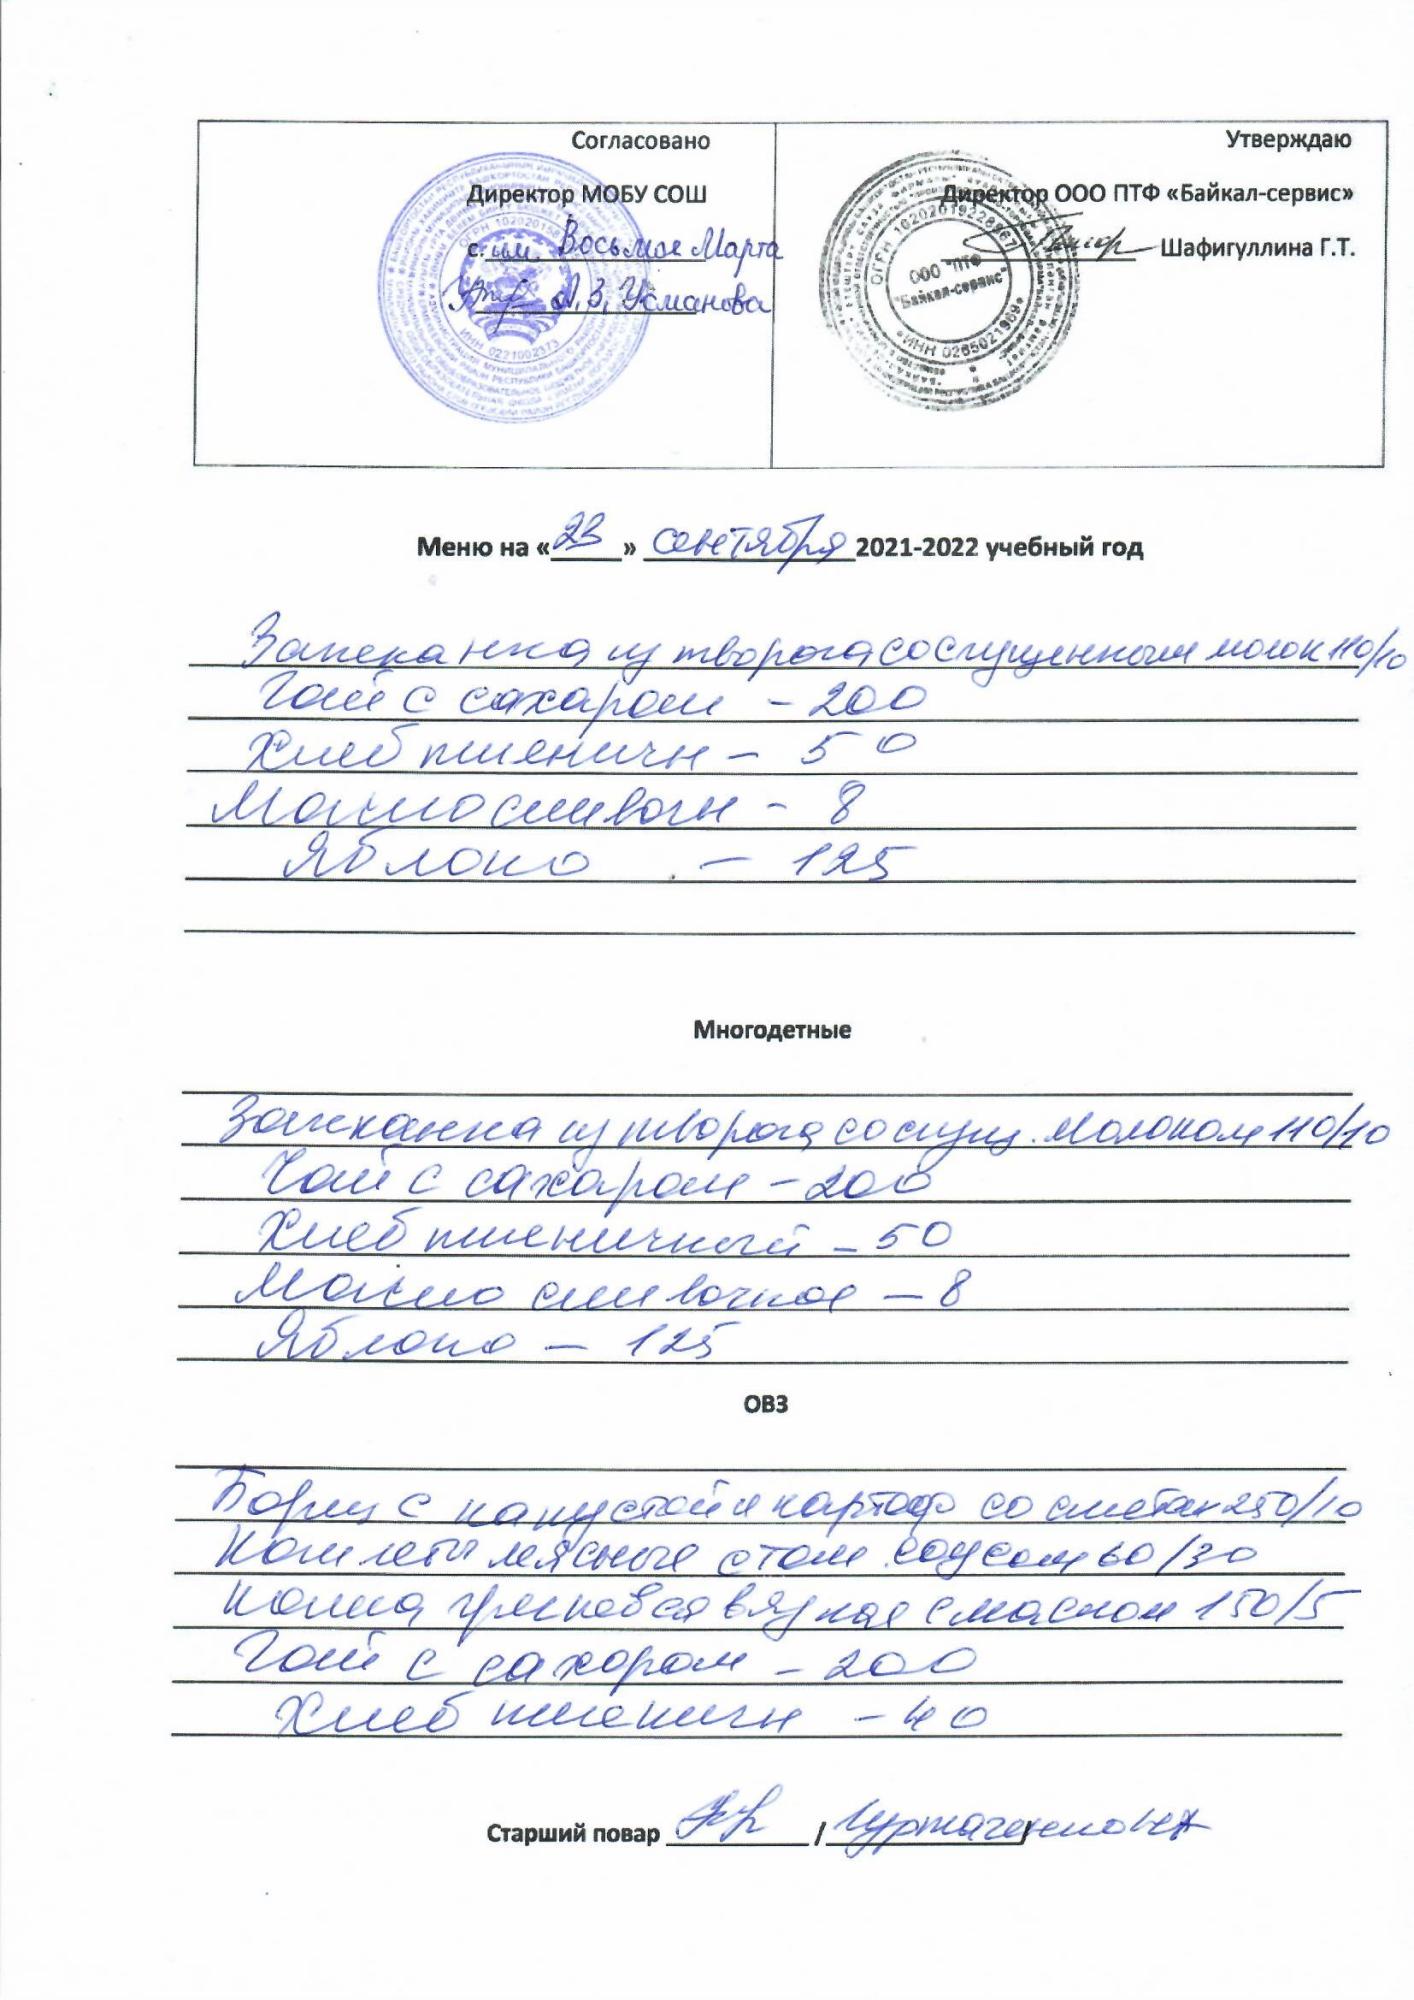 Согласовано
Директор МОБУ СОШ
с. им. Восьмое Марта
А.З. Усманова
ОГРН 102020158
ИНН 0221002373
Утверждаю
Директор ООО ПТФ «Байкал-сервис»
Шафигуллина Г.Т.
ОГРН 1020201922896
ООО "ПТФ
"Байкал-сервис"
ИНН 0265021969
Меню на «23» сентября 2021-2022 учебный год
Запеканка из творога со сгущенным молок 110/10
Чай с сахаром - 200
Хлеб пшеничн - 50
Масло сливочн - 8
Яблоко - 125
Многодетные
Запеканка из творога со сгущ. молоком 110/10
Чай с сахаром - 200
Хлеб пшеничный - 50
Масло сливочное - 8
Яблоко - 125
ОВЗ
Борщ с капустой и картоф со сметан 250/10
Котлеты мясные с том. соусом 60/30
Каша гречневая вязкая с маслом 150/5
Чай с сахаром - 200
Хлеб пшеничн - 40
Старший повар / /